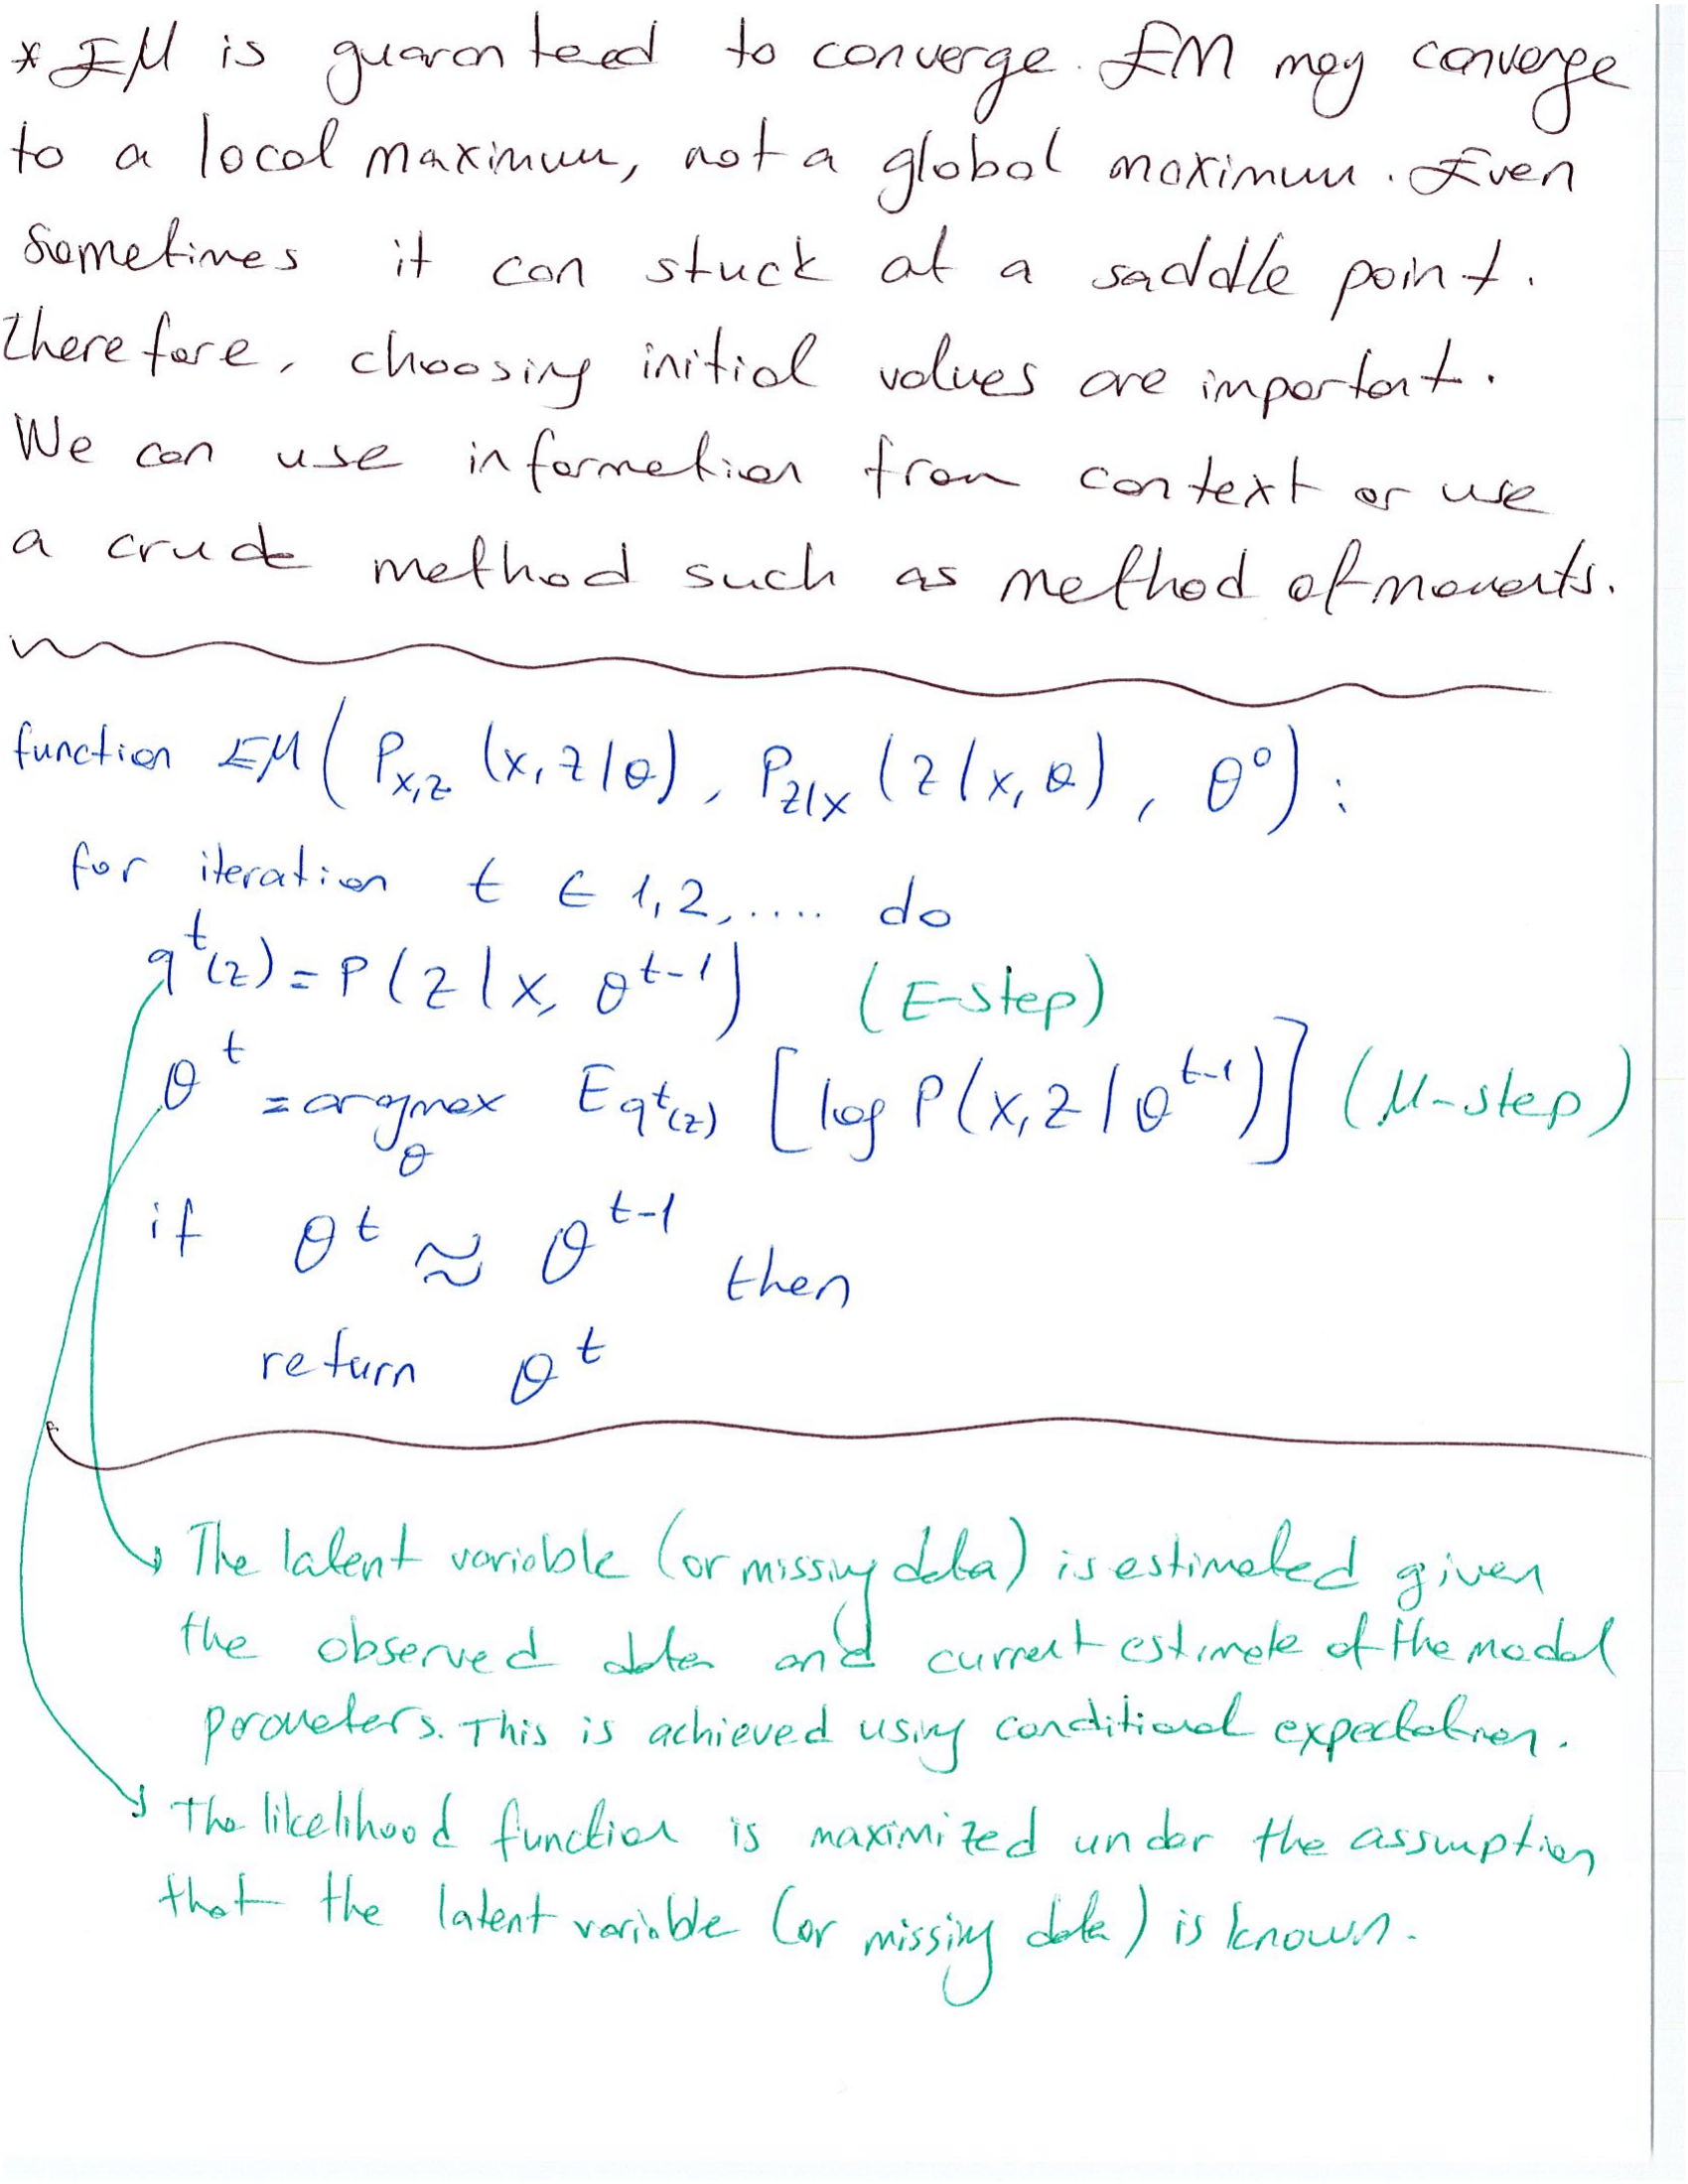 * EM is guaranteed to converge. EM may converge
to a local maximum, not a global maximum. Even
Sometimes it can stuck at a saddle point.
Therefore, choosing initial values are important.
We can use information from context or use
a crude method such as method of moments.
function EM ( P_{X,Z} (x,z|θ), P_{Z|X} (z|x,θ), θ⁰) :
for iteration t ∈ 1,2,.... do
q^t(z) = P(z|x, θ^{t-1}) (E-step)
θ^t = argmax_θ E_{q^t(z)} [log P(x,z|θ^{t-1})] (M-step)
if θ^t ≈ θ^{t-1} then
return θ^t
The latent variable (or missing data) is estimated given
the observed data and current estimate of the model
parameters. This is achieved using conditional expectation.
The likelihood function is maximized under the assumption
that the latent variable (or missing data) is known.